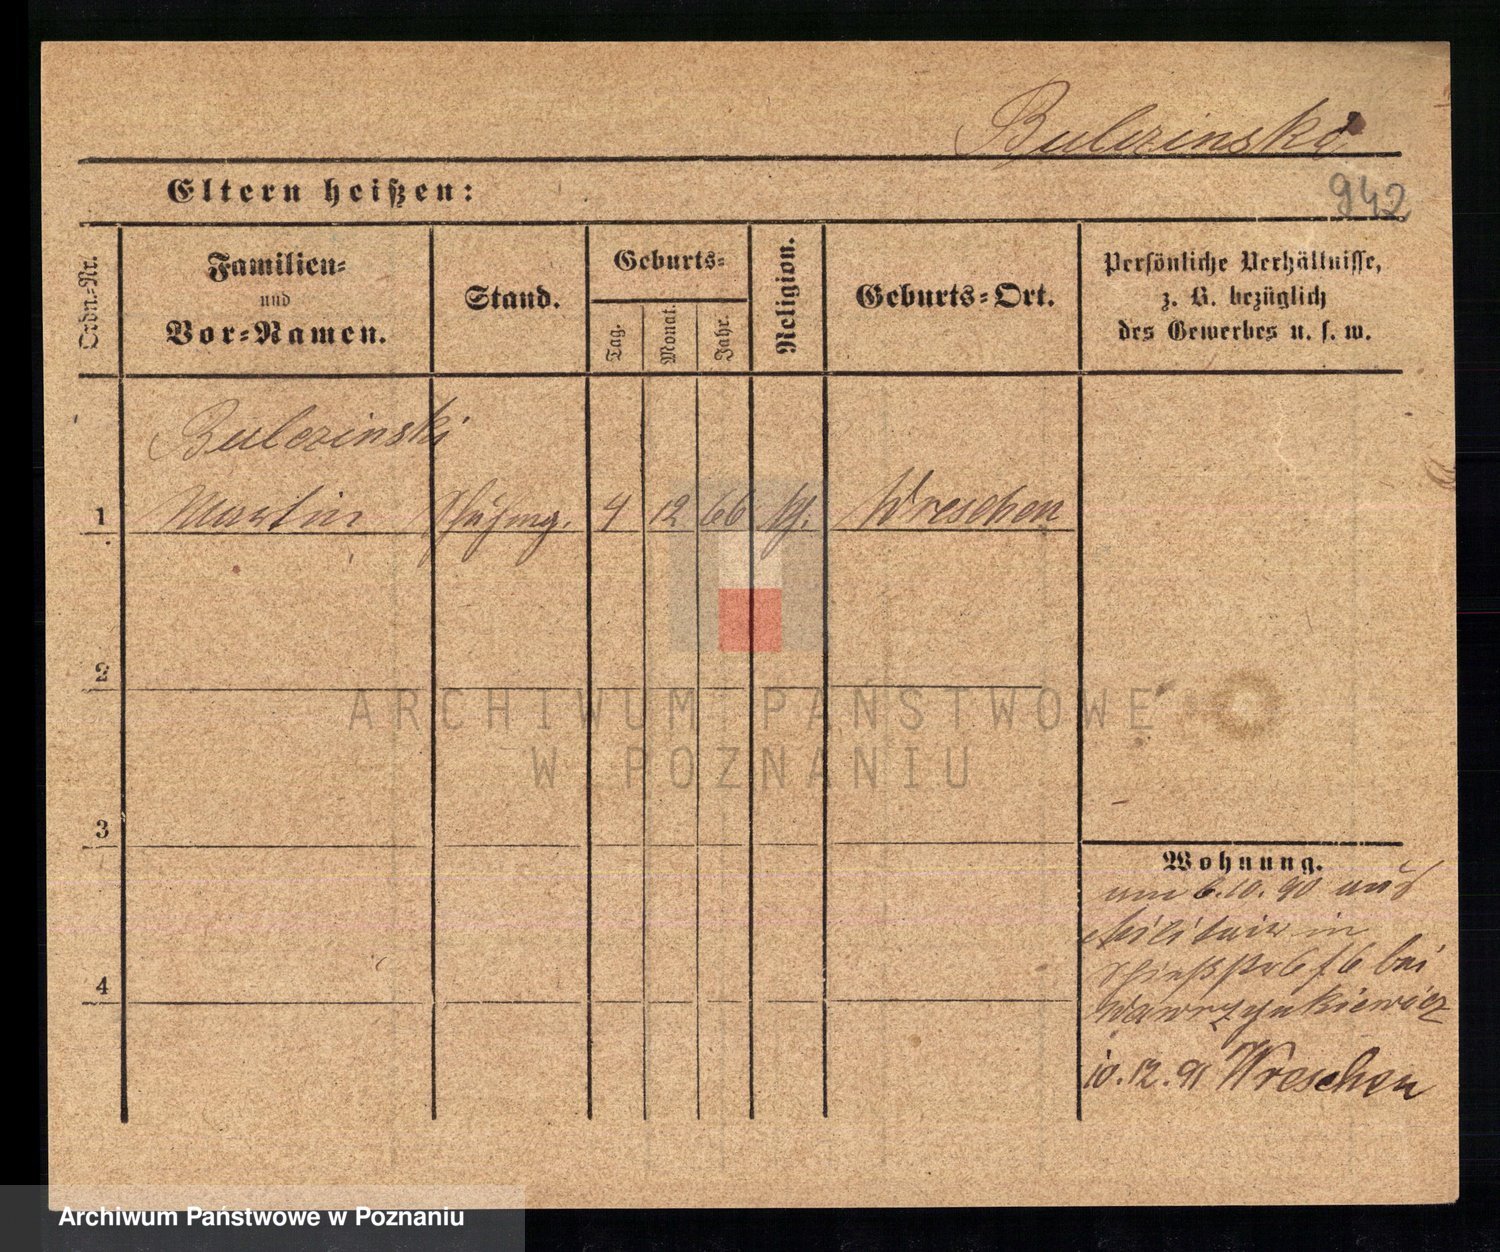 Bulczinski
942
Eltern heißen:
Ordn.-Nr.
Familien-
und
Vor-Namen.
Stand.
Geburts-
Tag.
Monat.
Jahr.
Religion.
Geburts-Ort.
Persönliche Verhältnisse,
z. B. bezüglich
des Gewerbes u. s. w.
Bulczinski
1 Martin 4 12 66 kth. Wreschen
2
3
4
Wohnung.
am 6.10.90 aus
Militair in
bei
Wawrzynkiewicz
10.12.91 Wreschen
ARCHIWUM PAŃSTWOWE
W POZNANIU
Archiwum Państwowe w Poznaniu